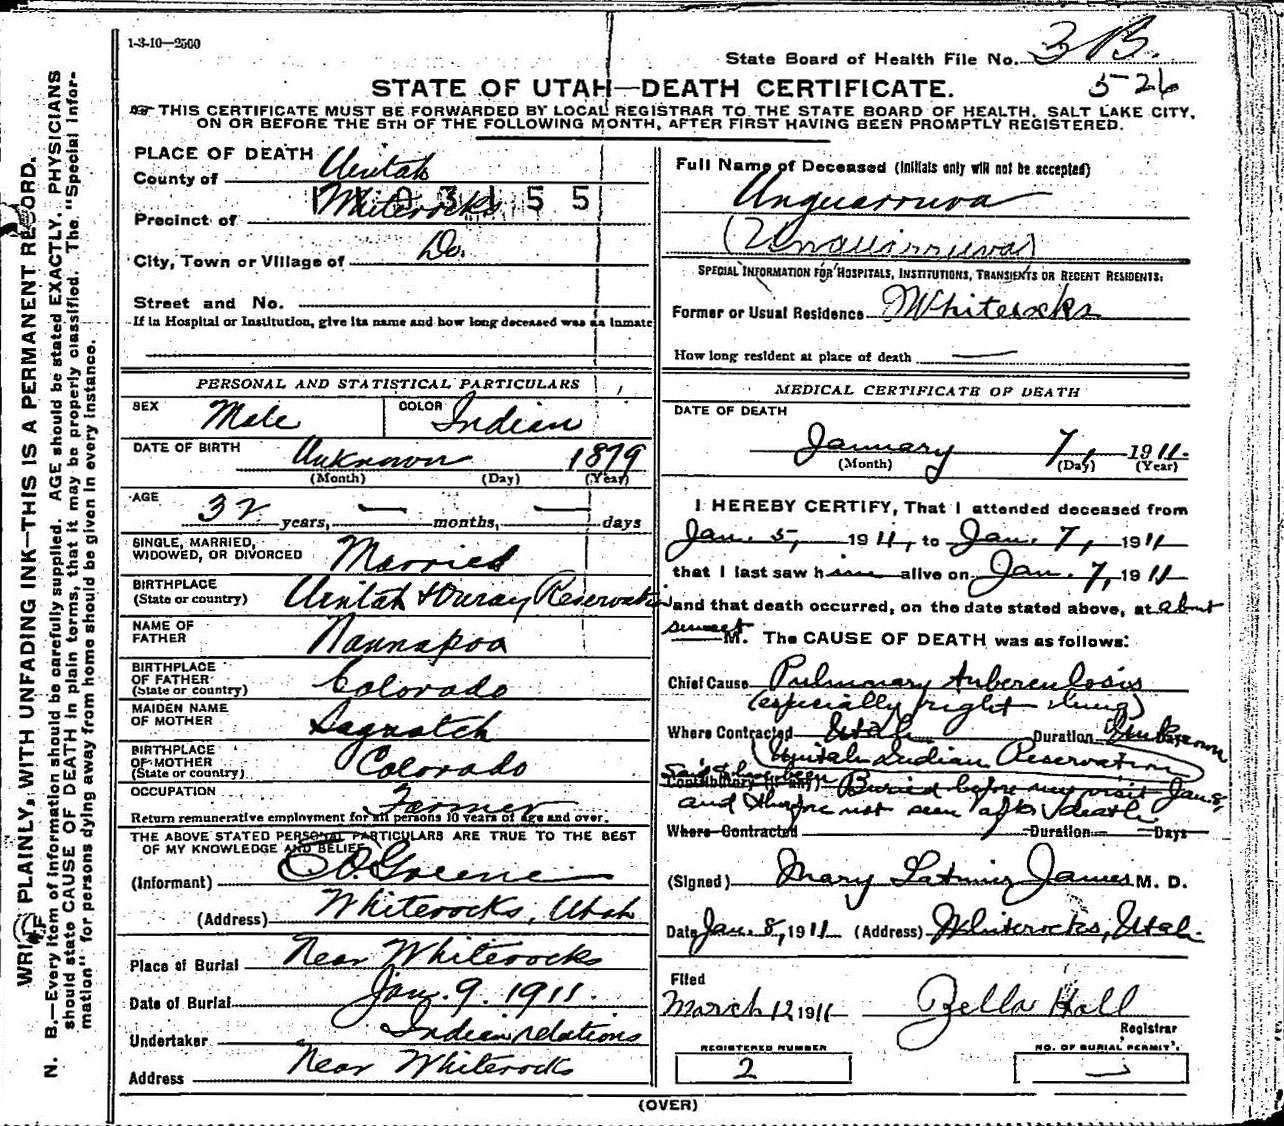 1-3-10—2500
State Board of Health File No. 3 B.
5-26
STATE OF UTAH—DEATH CERTIFICATE.
THIS CERTIFICATE MUST BE FORWARDED BY LOCAL REGISTRAR TO THE STATE BOARD OF HEALTH, SALT LAKE CITY,
ON OR BEFORE THE 5TH OF THE FOLLOWING MONTH, AFTER FIRST HAVING BEEN PROMPTLY REGISTERED.
PLACE OF DEATH
County of Uintah
Precinct of Whiterocks
City, Town or Village of Do.
Street and No.
If in Hospital or Institution, give its name and how long deceased was an inmate
PERSONAL AND STATISTICAL PARTICULARS
SEX Male COLOR Indian
DATE OF BIRTH Unknown 1879
(Month) (Day) (Year)
AGE
32 years, — months, — days
SINGLE, MARRIED,
WIDOWED, OR DIVORCED Married
BIRTHPLACE
(State or country) Uintah & Ouray Reservation
NAME OF
FATHER Nannapoo
BIRTHPLACE
OF FATHER
(State or country) Colorado
MAIDEN NAME
OF MOTHER Saguatch
BIRTHPLACE
OF MOTHER
(State or country) Colorado
OCCUPATION Farmer
Return remunerative employment for all persons 10 years of age and over.
THE ABOVE STATED PERSONAL PARTICULARS ARE TRUE TO THE BEST
OF MY KNOWLEDGE AND BELIEF
(Informant) Greene
(Address) Whiterocks, Utah
Place of Burial Near Whiterocks
Date of Burial Jan. 9. 1911.
Undertaker Indian relations
Address Near Whiterocks
Full Name of Deceased (Initials only will not be accepted)
Unquarruva
(Unquarruva)
SPECIAL INFORMATION FOR HOSPITALS, INSTITUTIONS, TRANSIENTS OR RECENT RESIDENTS.
Former or Usual Residence Whiterocks
How long resident at place of death —
MEDICAL CERTIFICATE OF DEATH
DATE OF DEATH
January 7, 1911.
(Month) (Day) (Year)
I HEREBY CERTIFY, That I attended deceased from
Jan. 5, 1911, to Jan. 7, 1911
that I last saw him alive on Jan. 7, 1911
and that death occurred, on the date stated above, at about
sunset M. The CAUSE OF DEATH was as follows:
Chief Cause Pulmonary tuberculosis
(especially right lung)
Where Contracted Utah Duration Unknown Days
(Uintah Indian Reservation)
Said to have been
Contributory (if any) Buried before my visit Jan 8,
and therefore not seen after death
Where Contracted Duration Days
(Signed) Mary Latimer James M. D.
Date Jan. 8, 1911 (Address) Whiterocks, Utah.
Filed
March 12 1911 Zella Hall
Registrar
REGISTERED NUMBER
2
NO. OF BURIAL PERMIT.
(OVER)
WRITE PLAINLY, WITH UNFADING INK—THIS IS A PERMANENT RECORD.
N. B.—Every item of information should be carefully supplied. AGE should be stated EXACTLY. PHYSICIANS
should state CAUSE OF DEATH in plain terms, that it may be properly classified. The "Special Infor-
mation" for persons dying away from home should be given in every instance.